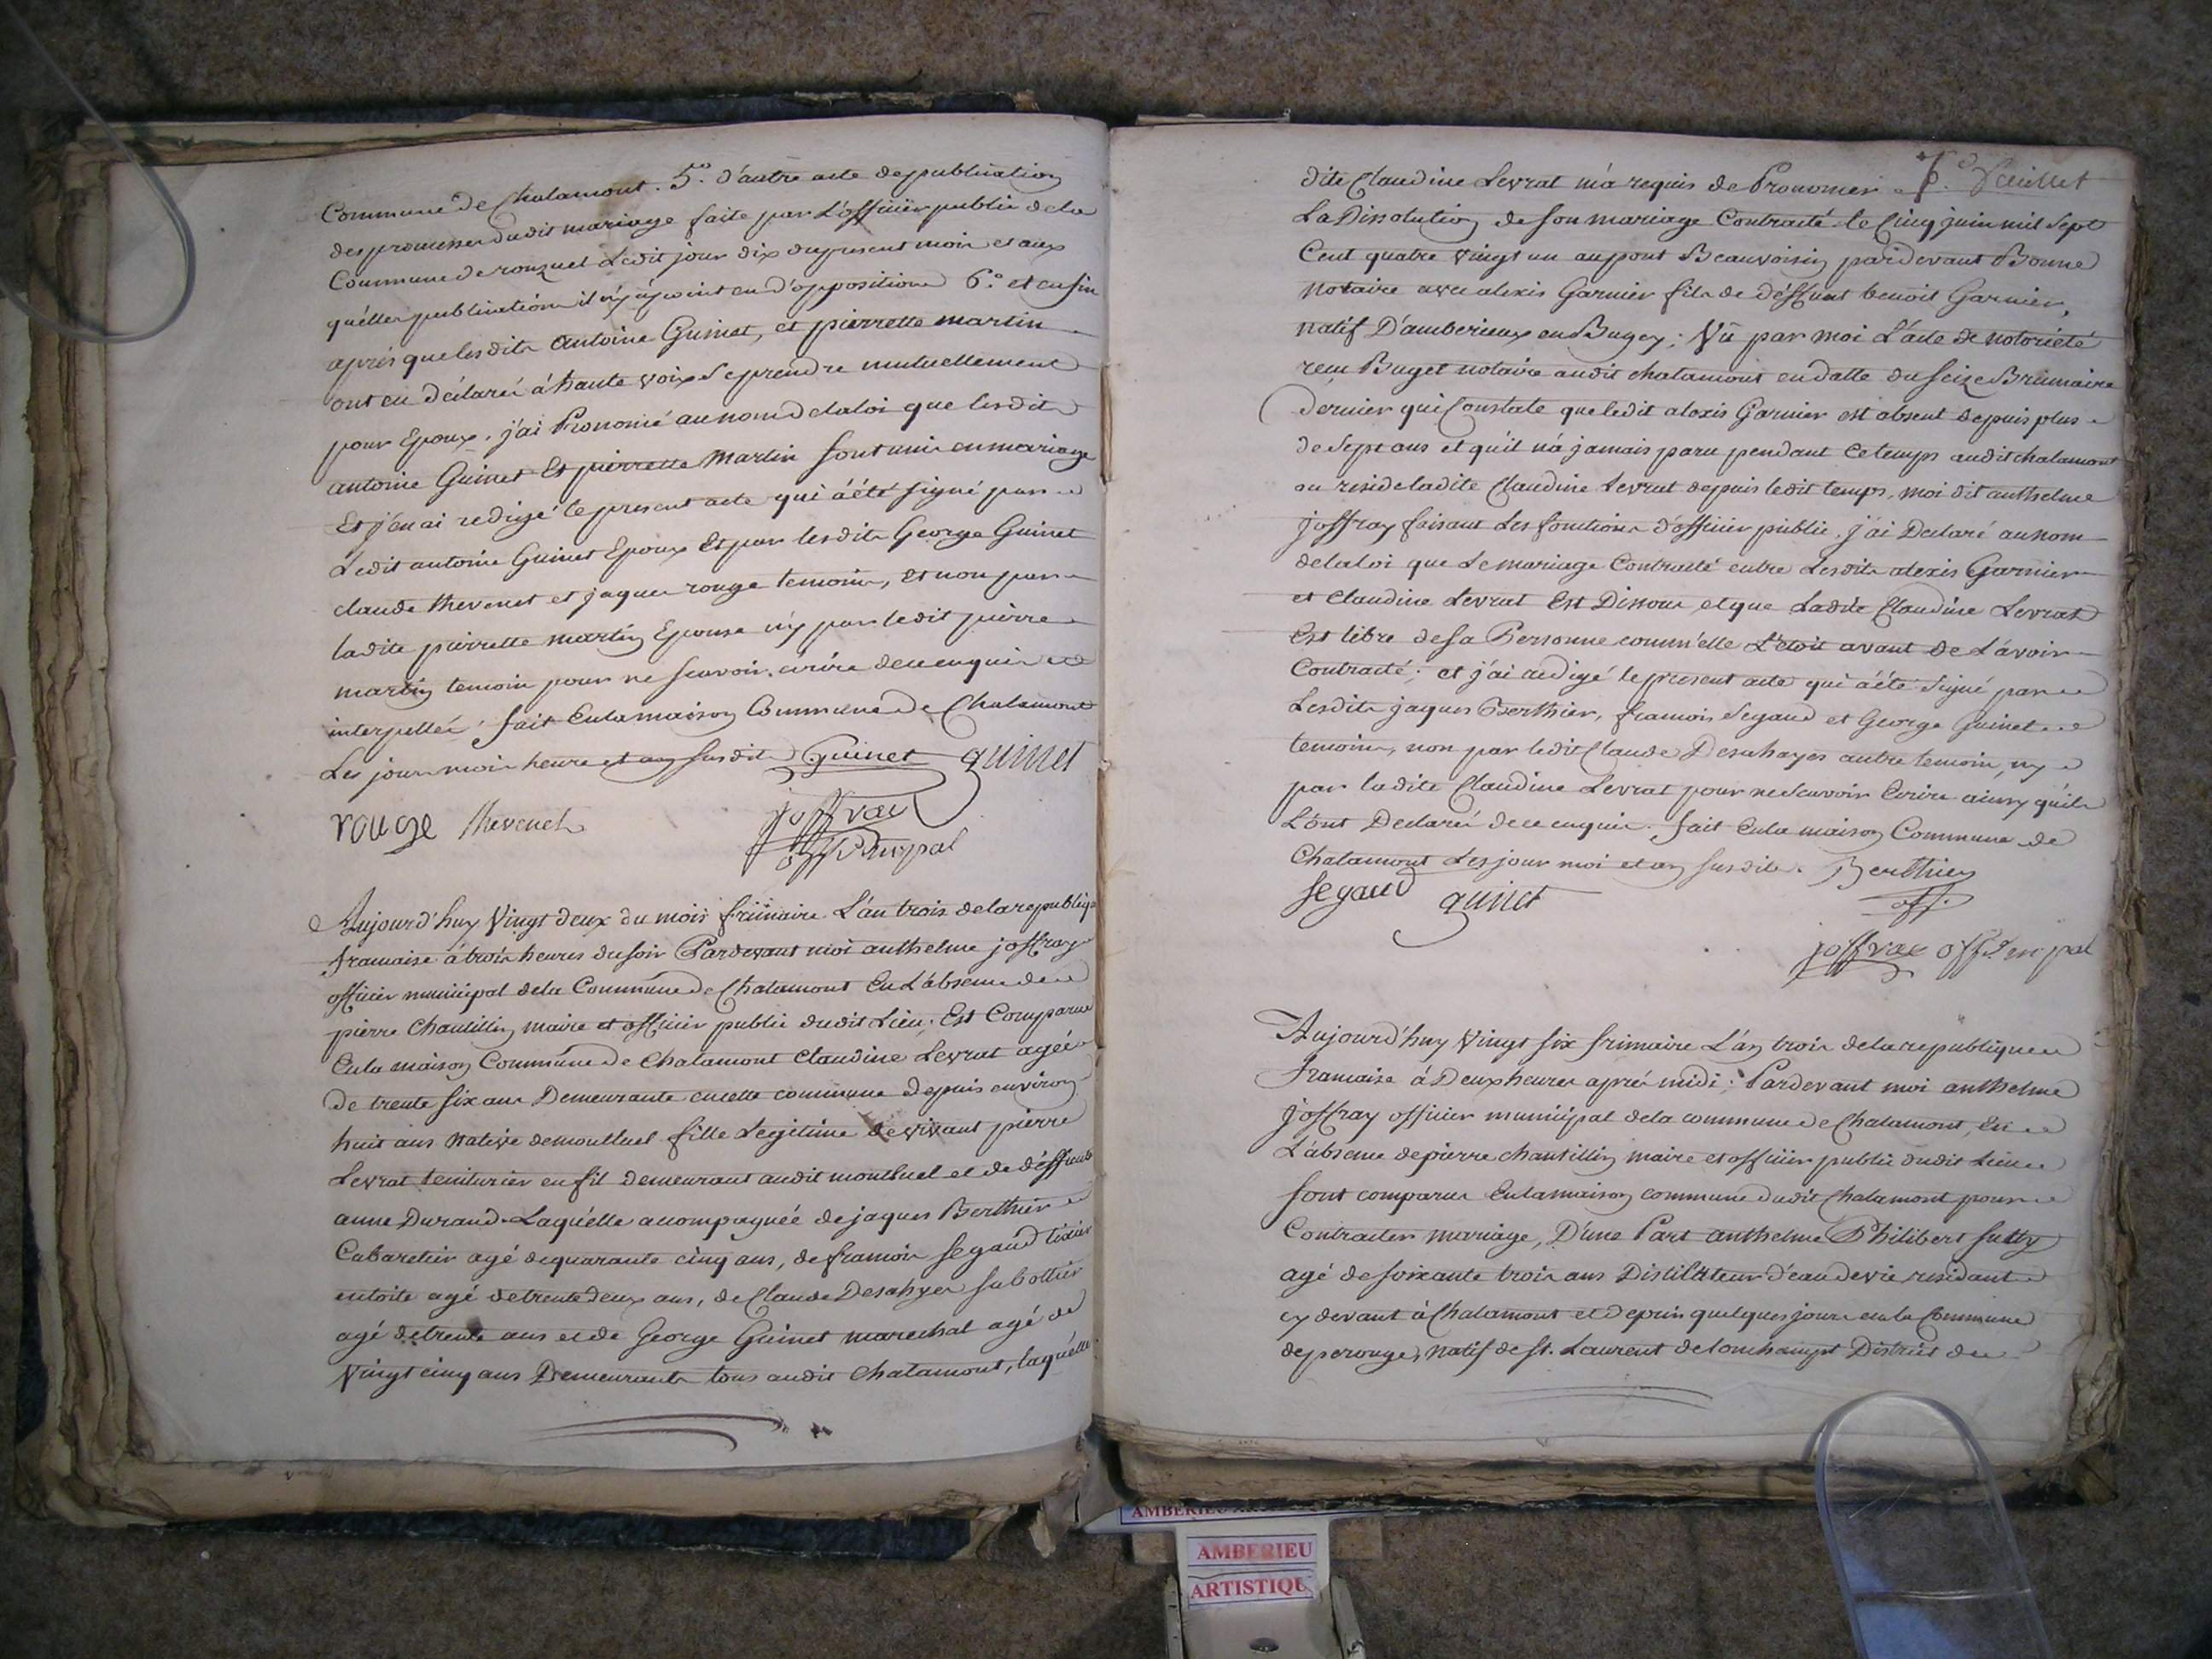 Commune de Chalamont. 5.° d'autre acte de publication
des promesses dudit mariage faite par L'officier public de la
Commune de ronzuel Ledit jour dix du present mois et aux
quélles publications il n'y a point eu d'opposition 6.° et enfin
aprés que lesdits antoine Guinet, et pierrette martin
ont eu déclaré á haute voix Se prendre mutuellement
pour Epoux. j'ai Prononcé au nom de la loi que lesdits
antoine Guinet Et pierrette Martin sont unis en mariage
Et j'en ai redigé le present acte qui á été signé par
Ledit antoine Guinet Epoux Et par lesdits George Guinet
claude thevenet et jaques rouge temoins, et non par
ladite pierrette martin Epouse n'y par ledit pierre
martin temoin pour ne scavoir écrire de ce enquis et
interpellés. fait En la maison Commune de Chalamont
Les jour mois heure et an susdits Guinet guinet
rouge thevenet joffray
off. municipal
Aujourd'huy Vingt deux du mois frimaire L'an trois de la republiq
francaise á trois heures du soir Pardevant moi anthelme joffray
officier municipal de la Commune de Chalamont En L'absence de
pierre Chantillin maire et officier public dudit Lieu. Est Comparue
En la maison Commune de Chalamont Claudine Levrat agée
de trente six ans Demeurante en cette commune depuis environ
huit ans Native de montluel fille Legitime de vivant pierre
Levrat teinturier en fil demeurant audit montluel et de déffunte
anne Durand. Laquélle accompagnée de jaques Berthier
Cabaretier agé de quarante cinq ans, de francois Segaud tixier
en toile agé de trente deux ans, de Claude Desahyes sabottier
agé de trente ans et de George Guinet marechal agé de
Vingt cinq ans Demeurants tous audit Chalamont, laquélle
7.e feuillet
dite Claudine Levrat m'a requis de Prononcer
La Dissolution de son mariage Contracté le Cinq juin mil Sept
Cent quatre Vingt un au pont Beauvoisin pardevant Bonne
Notaire avec alexis Garnier fils de déffunt benoit Garnier,
natif D'amberieux en Bugey; Vû par moi L'acte de notorieté
recu Buget notaire audit chalamont en datte du seize Brumaire
dernier qui Constate que ledit alexis Garnier est absent depuis plus
de Sept ans et qu'il n'a jamais paru pendant ce temps audit chalamont
ou reside ladite Claudine Levrat depuis ledit temps, moi dit anthelme
joffray faisant Les fonctions d'officier public. j'ai Declaré au nom
de la loi que Le mariage Contracté entre Lesdits alexis Garnier
et Claudine Levrat Est Dissous et que Ladite Claudine Levrat
Est libre de sa Personne comm'elle L'etoit avant de L'avoir
Contracté; et j'ai redigé le present acte qui á été Signé par
Lesdits jaques Berthier, francois Segaud et George Guinet
temoins, non par ledit Claude Desahayes autre temoin, ny
par ladite Claudine Levrat pour ne Scavoir Ecrire ainsy qu'ils
L'ont Declaré de ce enquis. fait En la maison Commune de
Chalamont Les jour moi et an susdits. Berthier
segaud guinet
joffray off. municipal
Aujourd'huy Vingt six frimaire L'an trois de la republique
francaise á Deux heures aprés midi: Pardevant moi anthelme
Joffray officier municipal de la commune de Chalamont, En
L'absence de pierre chantillin maire et officier public dudit Lieu
sont comparus En la maison commune dudit Chalamont pour
Contracter mariage, D'une Part anthelme Philibert sutty
agé de soixante trois ans Distillateur d'eau de vie residant
cy devant á Chalamont et depuis quelques jours en la Commune
de perouges, Natif de st. Laurent de
District de
AMBERIEU
AMBERIEU
ARTISTIQU